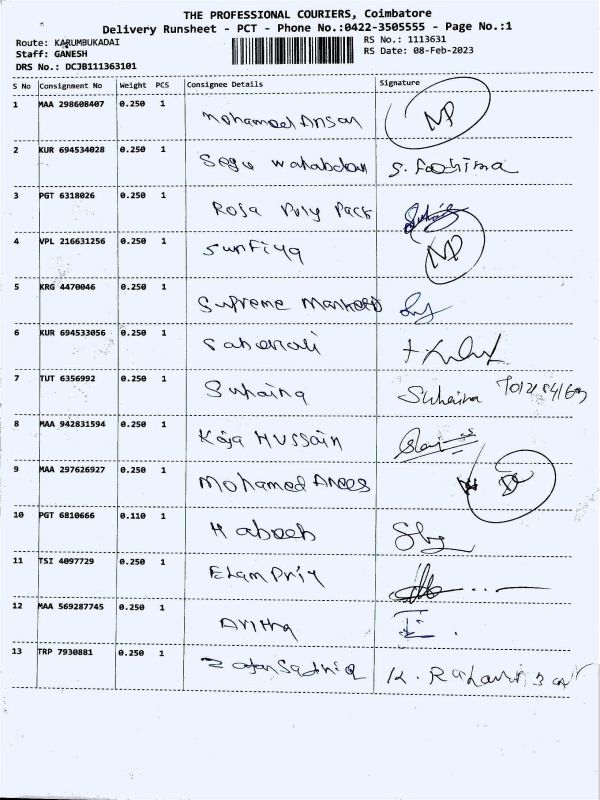 THE PROFESSIONAL COURIERS, Coimbatore
Delivery Runsheet - PCT - Phone No.:0422-3505555 - Page No.:1
Route: KARUMBUKADAI RS No.: 1113631
Staff: GANESH RS Date: 08-Feb-2023
DRS No.: DCJB111363101
S No Consignment No Weight PCS Consignee Details Signature
1 MAA 298608407 0.250 1 Mohamed Ansar NP
2 KUR 694534028 0.250 1 S. Fathima
3 PGT 6318026 0.250 1 Rosa Poly Pack
4 VPL 216631256 0.250 1 Sunfiya NP
5 KRG 4470046 0.250 1 Supreme
6 KUR 694533056 0.250 1
7 TUT 6356992 0.250 1 Suhaina Suhaina
8 MAA 942831594 0.250 1 Kaja Hussain
9 MAA 297626927 0.250 1 Mohamed Anees
10 PGT 6810666 0.110 1 Habeeb
11 TSI 4097729 0.250 1
12 MAA 569287745 0.250 1
13 TRP 7930881 0.250 1 K.